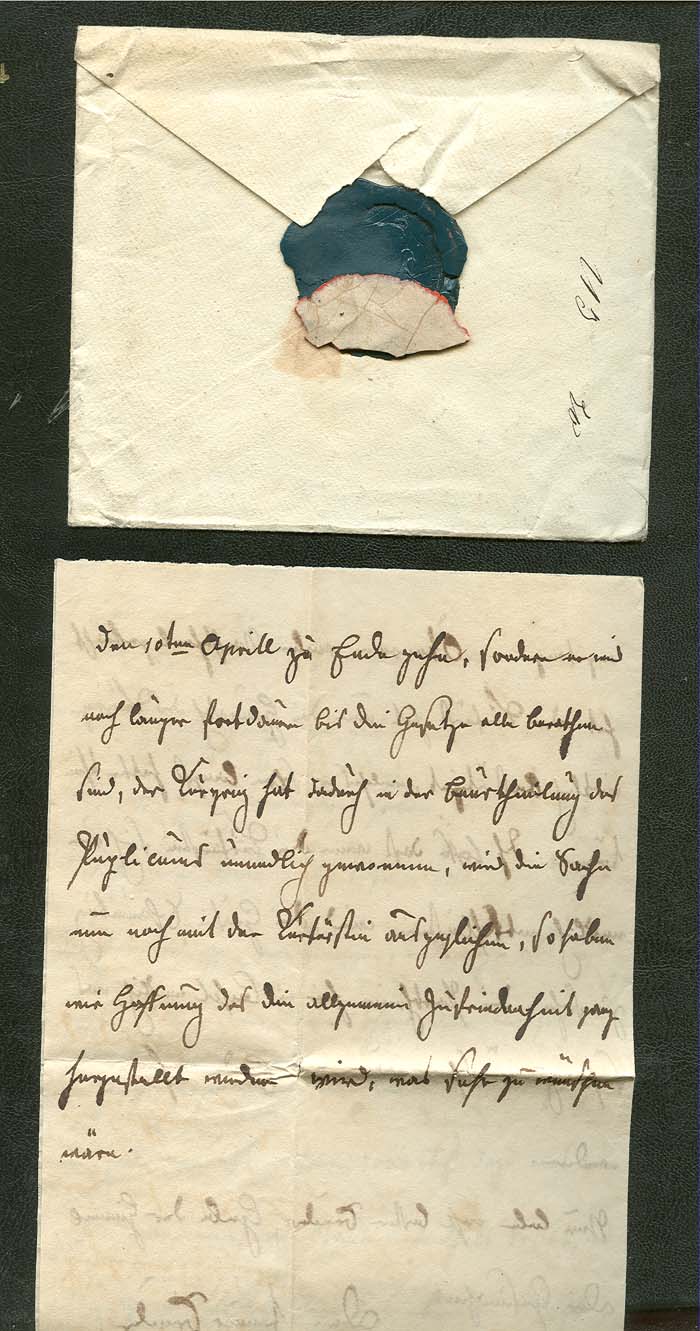 113
den 10ten Aprill zu Ende gehn, sondern er wird
noch länger fortdauern bis die Gesetze alle berathen
sind, der Kurprinz hat dadurch in der Beurtheilung des
Puplicums unendlich gewonnen, wird die Sache
nun noch mit der Kurfürstin ausgeglichen, so haben
wir Hoffnung das die allgemeine Zufriedenheit ganz
hergestellt werden wird, was sehr zu wünschen
wäre.